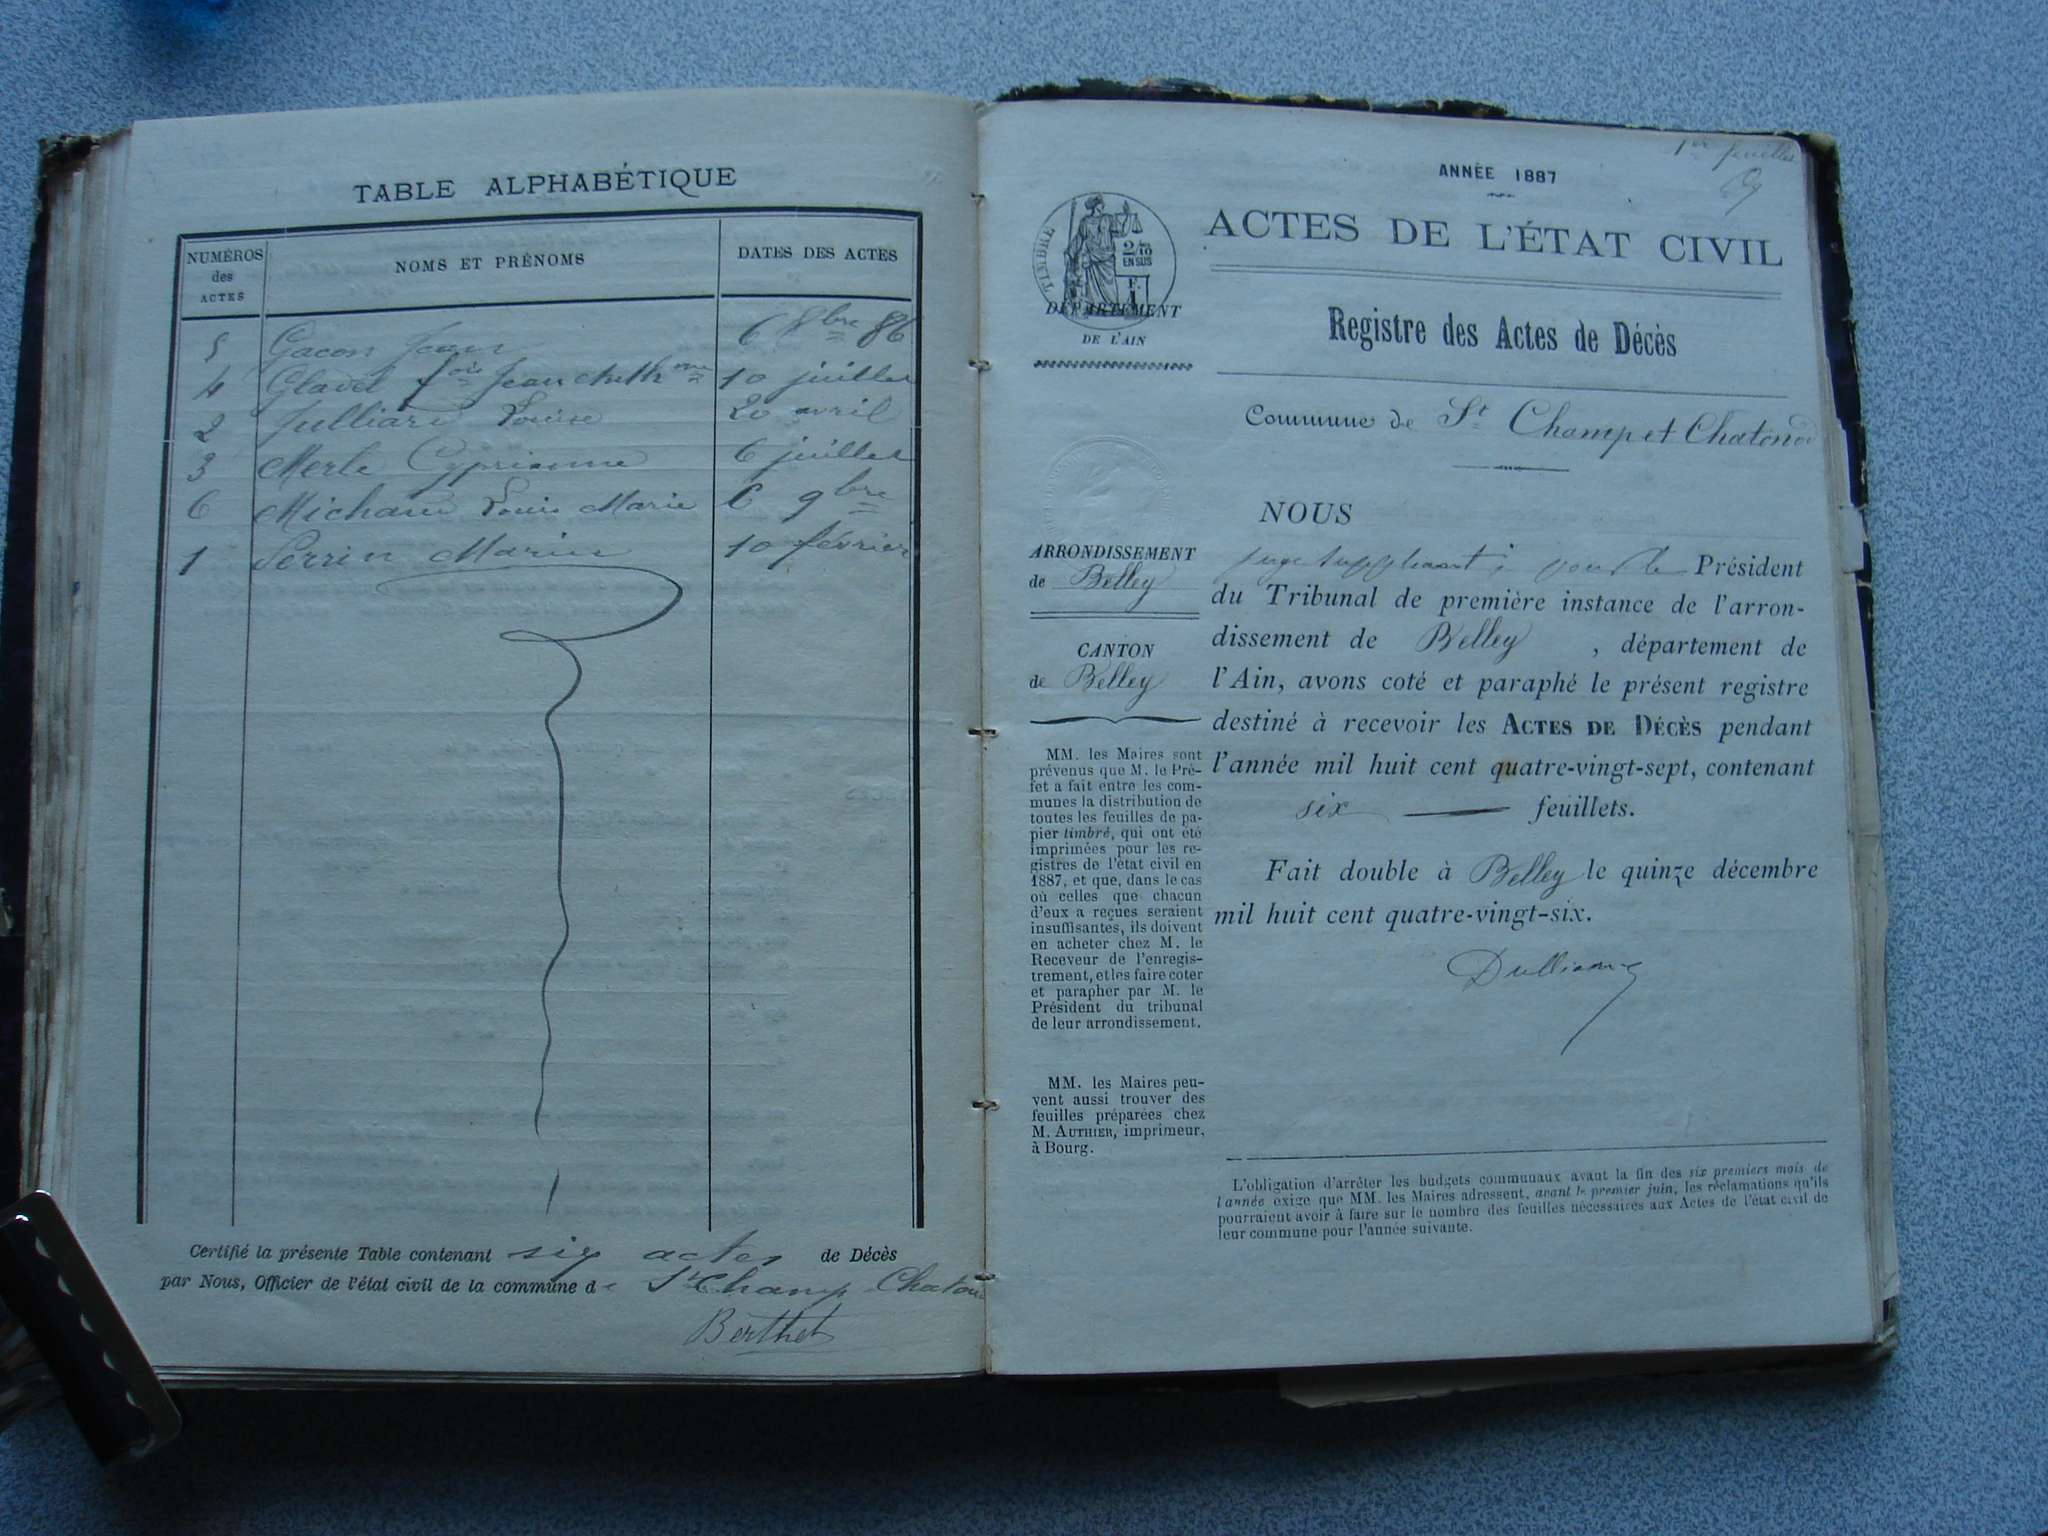 TABLE ALPHABÉTIQUE
NUMÉROS des ACTES
NOMS ET PRÉNOMS
DATES DES ACTES
5 Gacon Jean 6 8bre 86
4 Clavel Jean 10 juillet
2 Julliard Louise 20 avril
3 Merle Cyprienne 6 juillet
6 Michaud Louis Marie 6 9bre
1 Perrin Marie 10 février
Certifié la présente Table contenant six actes de Décès
par Nous, Officier de l'état civil de la commune de St Champ Chaton
Berthet
1er feuillet
ANNÉE 1887
ACTES DE L'ÉTAT CIVIL
TIMBRE
2/10 EN SUS
F. 1
DÉPARTEMENT
DE L'AIN
Registre des Actes de Décès
Commune de St Champ et Chatonod
ARRONDISSEMENT
de Belley
CANTON
de Belley
MM. les Maires sont
prévenus que M. le Pré-
fet a fait entre les com-
munes la distribution de
toutes les feuilles de pa-
pier timbré, qui ont été
imprimées pour les re-
gistres de l'état civil en
1887, et que, dans le cas
où celles que chacun
d'eux a reçues seraient
insuffisantes, ils doivent
en acheter chez M. le
Receveur de l'enregis-
trement, et les faire coter
et parapher par M. le
Président du tribunal
de leur arrondissement.
MM. les Maires peu-
vent aussi trouver des
feuilles préparées chez
M. AUTHIER, imprimeur,
à Bourg.
NOUS
juge suppléant, pour le Président
du Tribunal de première instance de l'arron-
dissement de Belley, département de
l'Ain, avons coté et paraphé le présent registre
destiné à recevoir les ACTES DE DÉCÈS pendant
l'année mil huit cent quatre-vingt-sept, contenant
six feuillets.
Fait double à Belley le quinze décembre
mil huit cent quatre-vingt-six.
L'obligation d'arrêter les budgets communaux avant la fin des six premiers mois de
l'année exige que MM. les Maires adressent, avant le premier juin, les réclamations qu'ils
pourraient avoir à faire sur le nombre des feuilles nécessaires aux Actes de l'état civil de
leur commune pour l'année suivante.